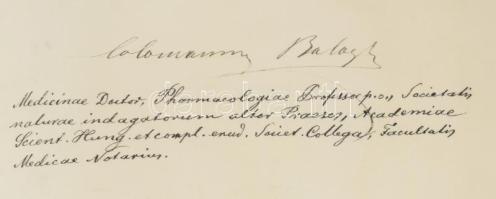 Colomannus Balogh
Medicinae Doctor, Pharmacologiae Professor p. o., Societatis
naturae indagatorum alter Praeses, Academiae
Scient. Hung. et compl. erud. Societ. Collega, Facultatis
Medicae Notarius.